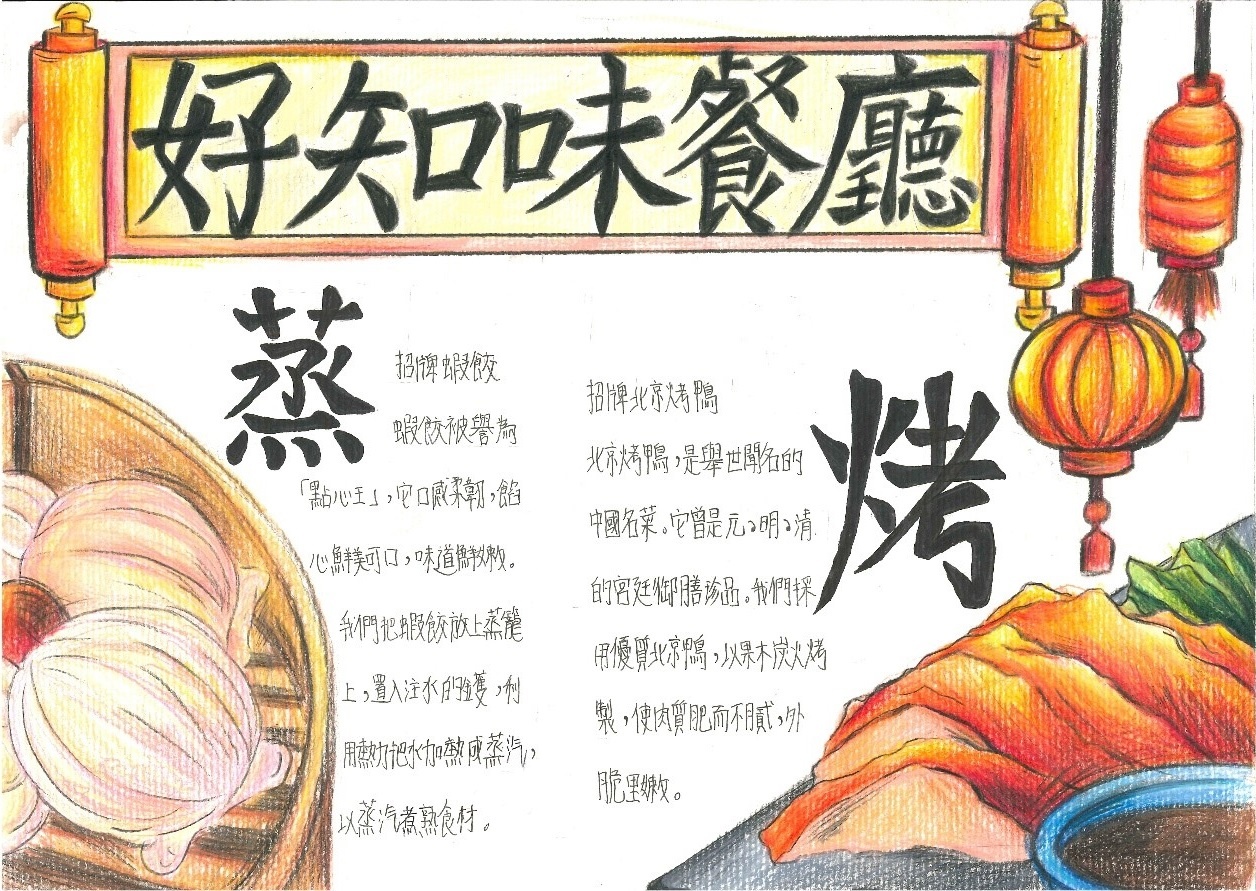 好知味餐廳
蒸
招牌蝦餃
蝦餃被譽為
「點心王」，它口感柔韌，餡
心鮮美可口，味道鮮嫩。
我們把蝦餃放上蒸籠
上，置入注水的鑊，利
用熱力把水加熱成蒸汽，
以蒸汽煮熟食材。
烤
招牌北京烤鴨
北京烤鴨，是舉世聞名的
中國名菜。它曾是元、明、清
的宮廷御膳珍品。我們採
用優質北京鴨，以果木炭火烤
製，使肉質肥而不膩，外
脆里嫩。